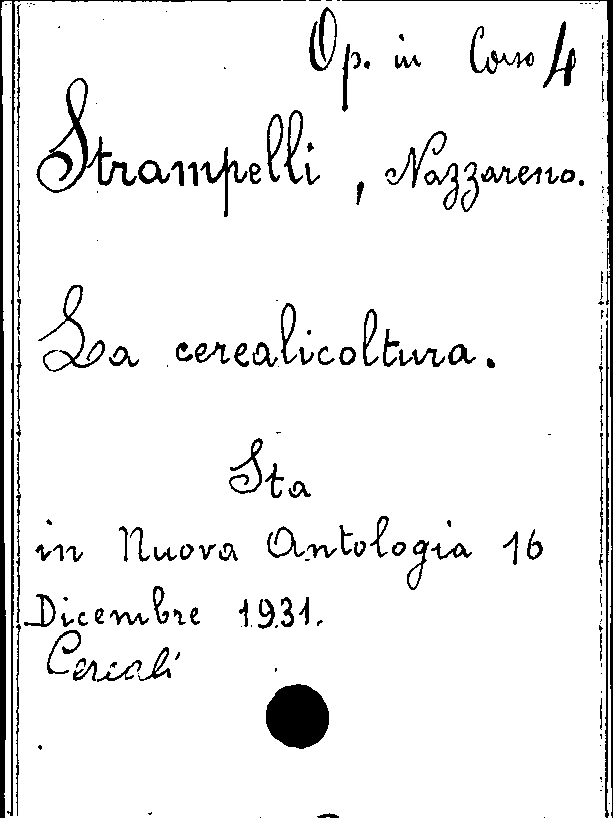 Op. in Corso 4
Strampelli, Nazzareno.
La cerealicoltura.
Sta
in Nuova Antologia 16
Dicembre 1931.
Cereali